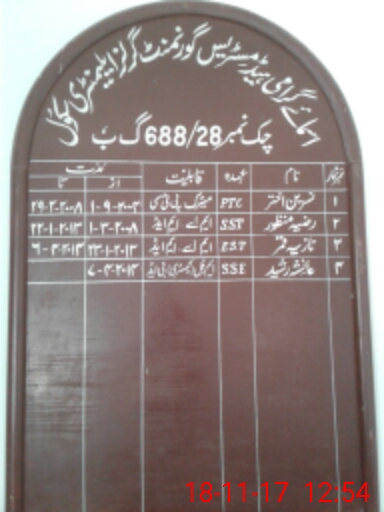 اسمائے گرامی ہیڈ مسٹریس گورنمنٹ گرلز ایلیمنٹری سکول
چک نمبر 688/28 گ ب
نمبر شمار نام عہدہ قابلیت مدت
از تا
۱ نسرین اختر PTC میٹرک پی ٹی سی ۱-۹-۲۰۰۳ ۲۹-۲-۲۰۰۸
۲ رضیہ منظور SST ایم اے ایم ایڈ ۱-۳-۲۰۰۸ ۲۲-۱-۲۰۱۳
۳ نازیہ قمر EST ایم اے ایم ایڈ ۲۳-۱-۲۰۱۳ ۶-۳-۲۰۱۳
۴ عائشہ رشید SSE ایم فل کیمسٹری بی ایڈ ۷-۳-۲۰۱۳
18-11-17 12:54